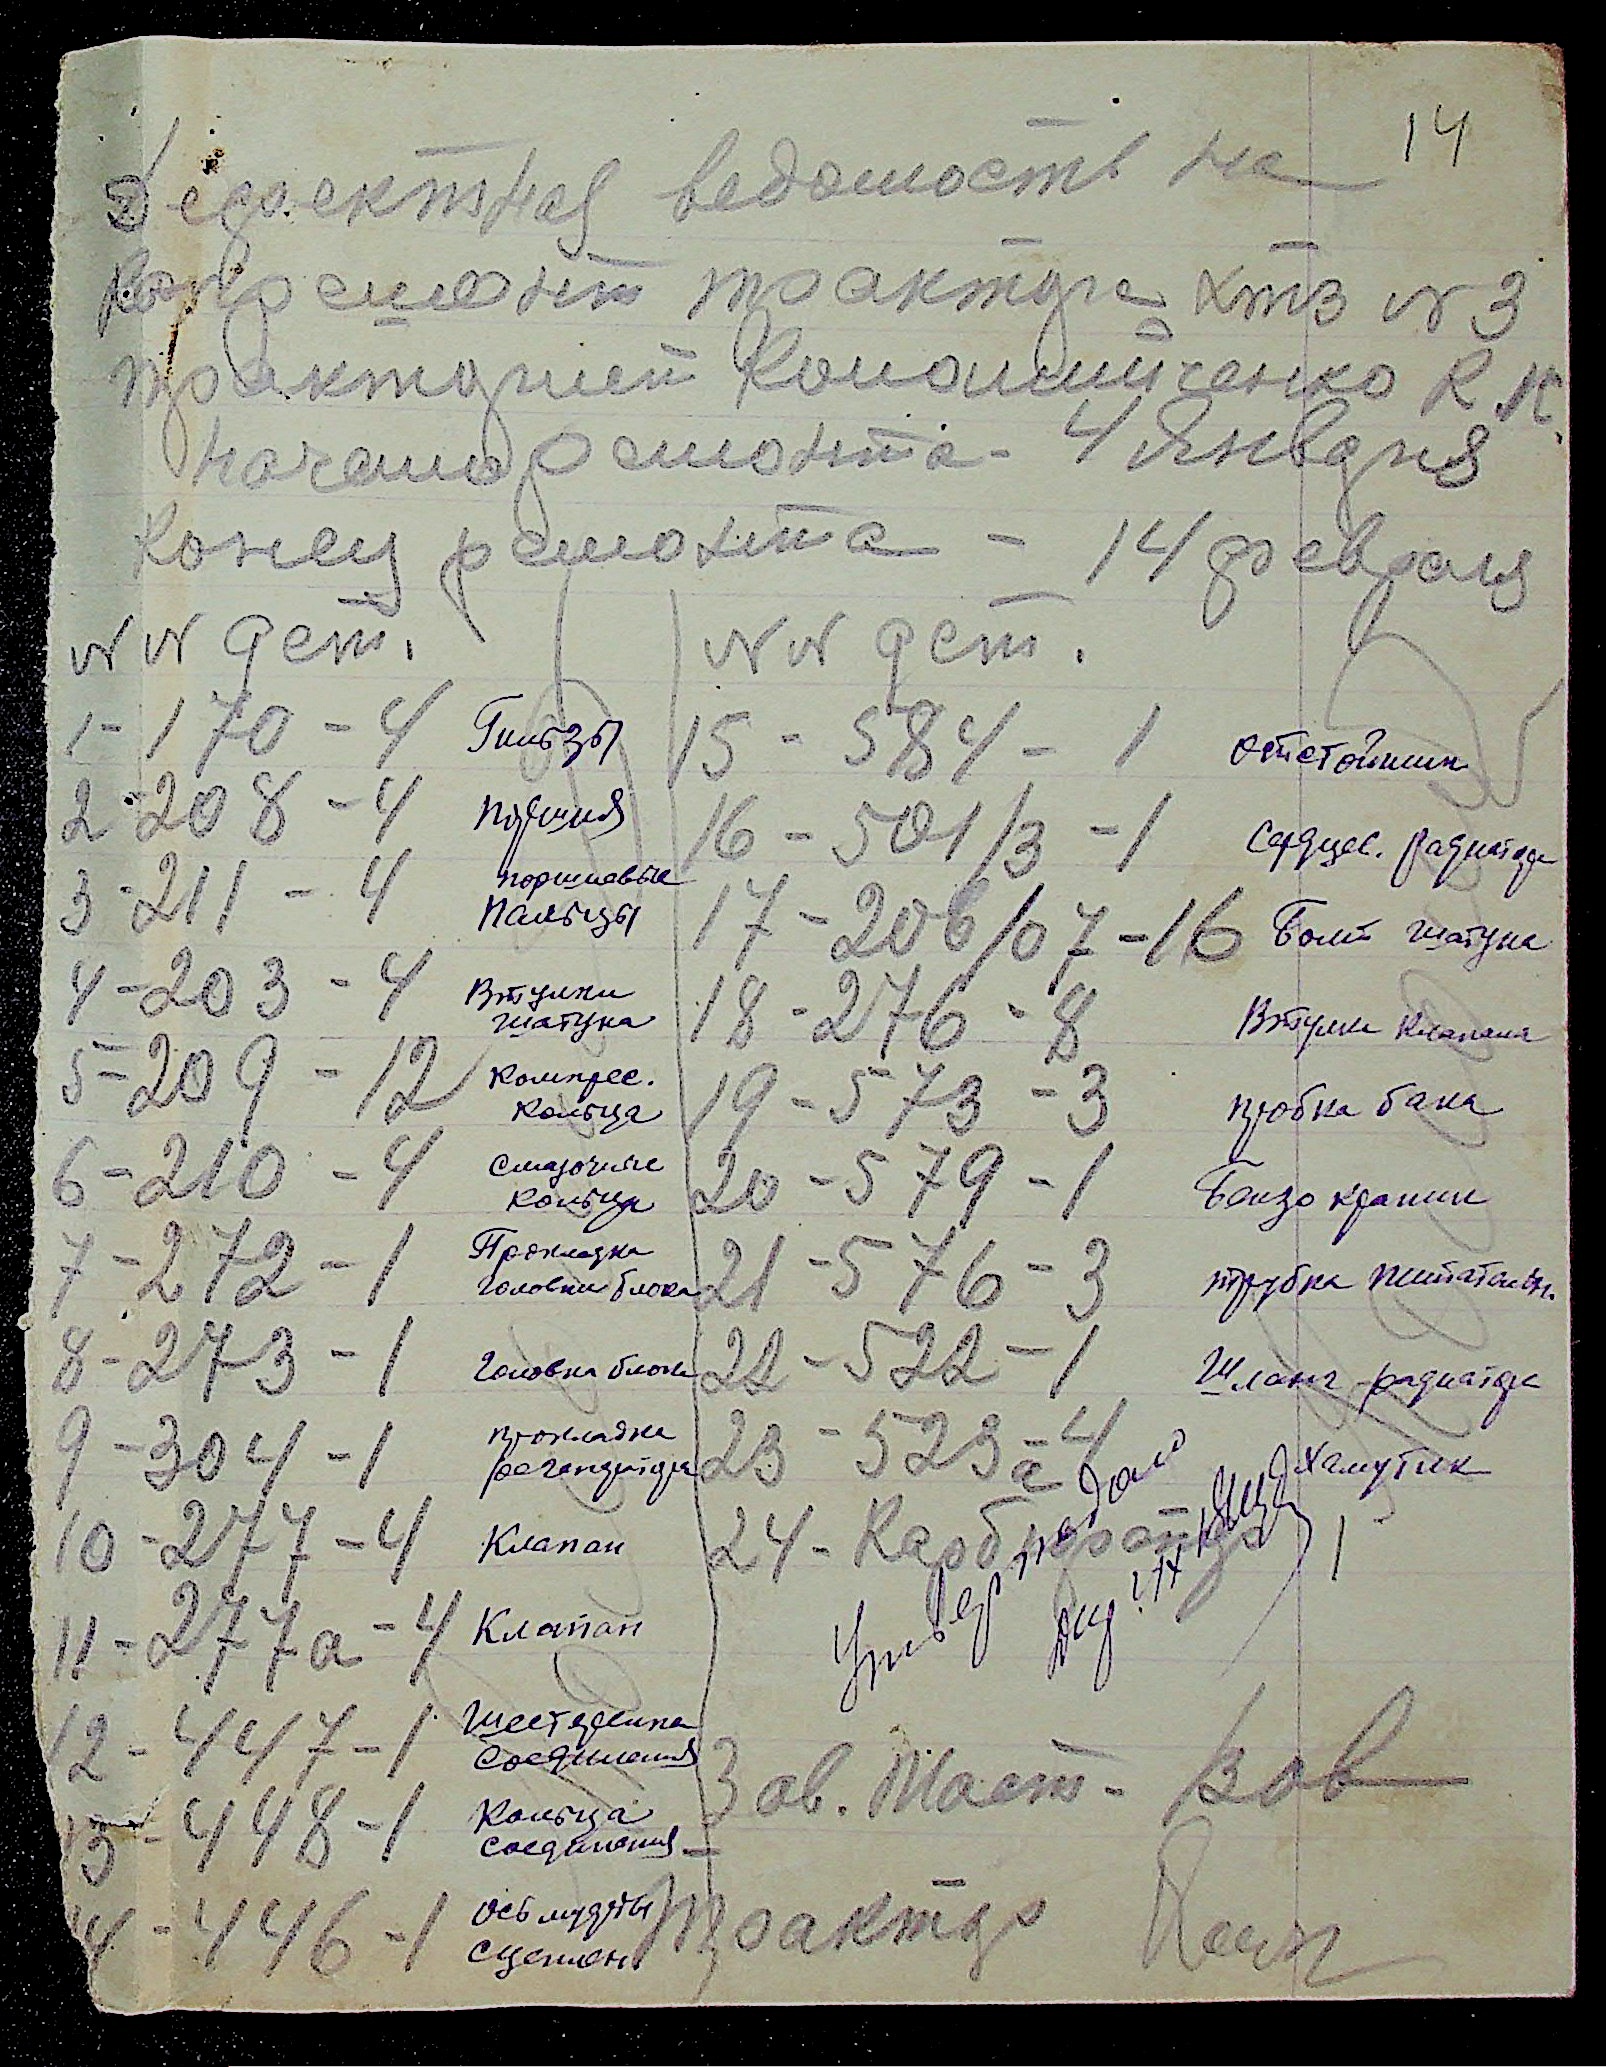 14
Дефектная ведомость на
капремонт трактора ХТЗ № 3
тракторист Коломийченко К. К.
начало ремонта - 4 января
Конец ремонта - 14 февраля
№ № дет.
1 - 170 - 4 Гильзы
2 - 208 - 4 Поршня
3 - 211 - 4 поршневые пальцы
4 - 203 - 4 Втулки шатуна
5 - 209 - 12 компрес. кольца
6 - 210 - 4 смазочные кольца
7 - 272 - 1 Прокладка головки блока
8 - 273 - 1 головка блока
9 - 304 - 1 прокладка
10 - 277 - 4 Клапан
11 - 277а - 4 Клапан
12 - 447 - 1 шестеренка соединения
13 - 448 - 1 Кольца соединения
14 - 446 - 1 ось муфты сцеплен.
№ № дет.
15 - 584 - 1 отстойник
16 - 501/3 - 1 сердцев. радиатора
17 - 206/07 - 16 Болт шатуна
18 - 276 - 8 Втулки клапана
19 - 573 - 3 пробка бака
20 - 579 - 1 Бензо краник
21 - 576 - 3 трубка питательн.
22 - 522 - 1 Шланг радиатора
23 - 523а - 4 Хамутик
24 - Карбюратор 1
Утверждаю
Зав. Маст -
Трактор